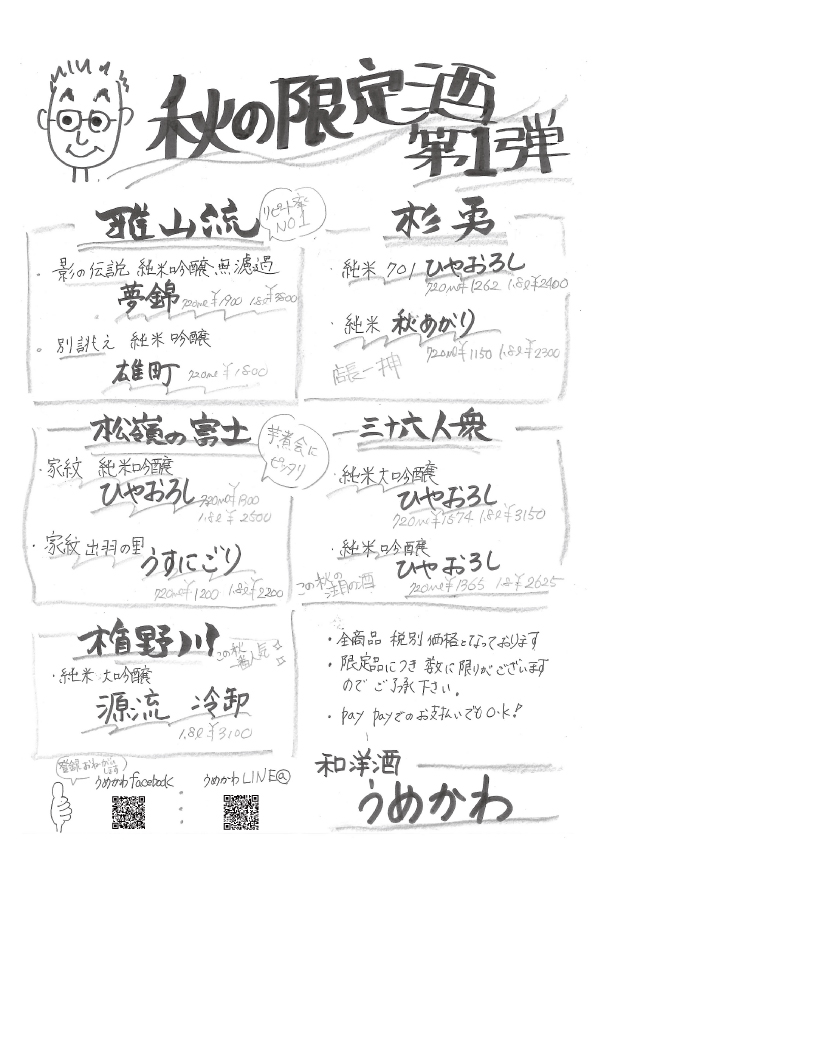 秋の限定酒
第1弾
雅山流
リピート率
NO1
・影の伝説 純米吟醸 無濾過
夢錦 720ml¥1900 1.8l¥3800
・別誂え 純米吟醸
雄町 720ml¥1800
杉勇
・純米 701 ひやおろし
720ml¥1262 1.8l¥2400
・純米 秋あかり
720ml¥1150 1.8l¥2300
店長一押
松嶺の富士
芋煮会に
ピッタリ
・家紋 純米吟醸
ひやおろし 720ml¥1900
1.8l¥2500
・家紋 出羽の里
うすにごり
720ml¥1200 1.8l¥2200
三十六人衆
・純米大吟醸
ひやおろし
720ml¥1574 1.8l¥3150
・純米吟醸
ひやおろし
この秋の
注目の酒
720ml¥1365 1.8l¥2625
楯野川
この秋
一番人気
・純米大吟醸
源流 冷卸
1.8l¥3100
・全商品 税別価格となっております
・限定品につき 数に限りがございます
のでご了承下さい。
・pay payでのお支払いでもO.k!
登録おねがい
します
うめかわfacebook
うめかわLINE@
和洋酒
うめかわ